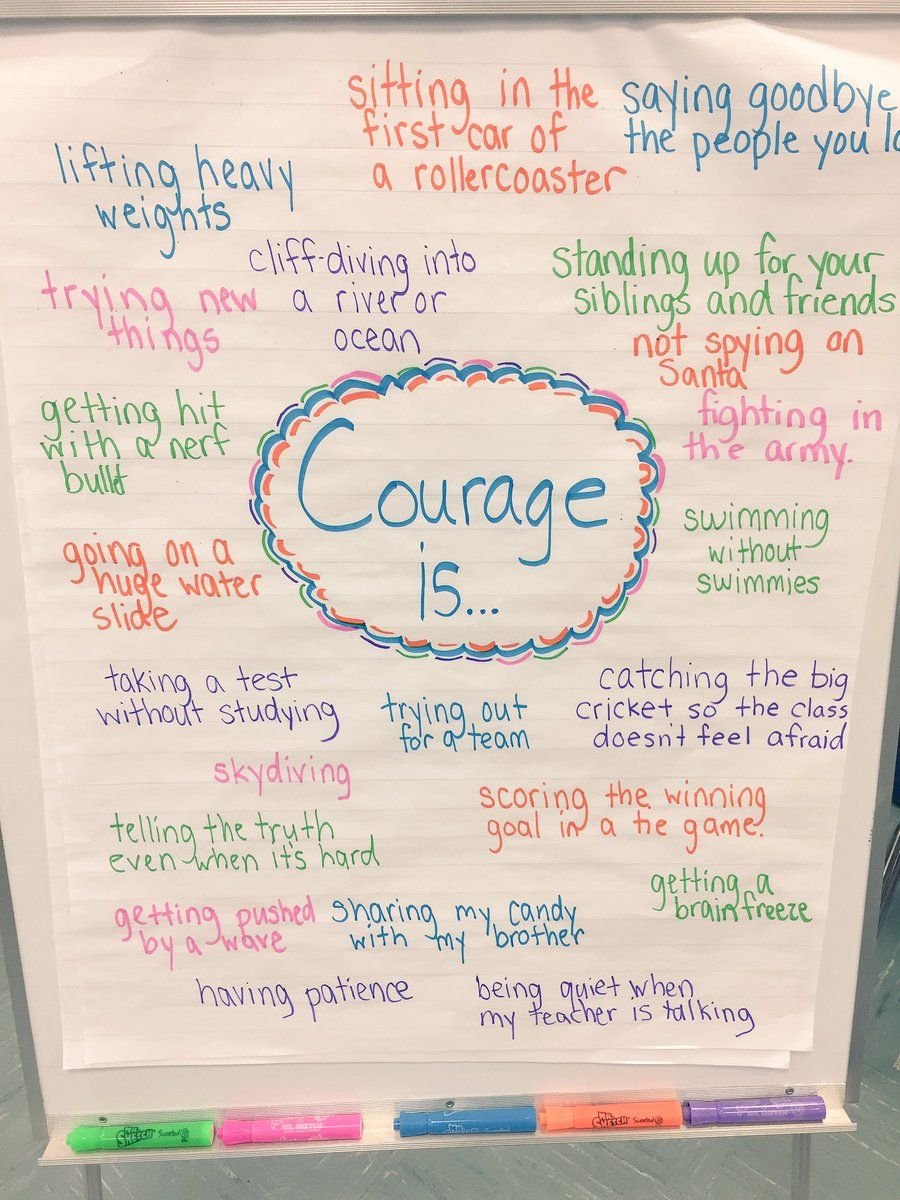 sitting in the
first car of
a rollercoaster
saying goodbye
the people you
lifting heavy
weights
cliff-diving into
a river or
ocean
standing up for your
siblings and friends
trying new
things
not spying on
Santa
getting hit
with a nerf
bullet
fighting in
the army.
Courage
is...
swimming
without
swimmies
going on a
huge water
slide
taking a test
without studying
trying out
for a team
catching the big
cricket so the class
doesn't feel afraid
skydiving
scoring the winning
goal in a tie game.
telling the truth
even when it's hard
getting a
brain freeze
getting pushed
by a wave
sharing my candy
with my brother
having patience
being quiet when
my teacher is talking
MR. SKETCH Scented
MR. SKETCH
MR. SKETCH
MR. SKETCH Scented